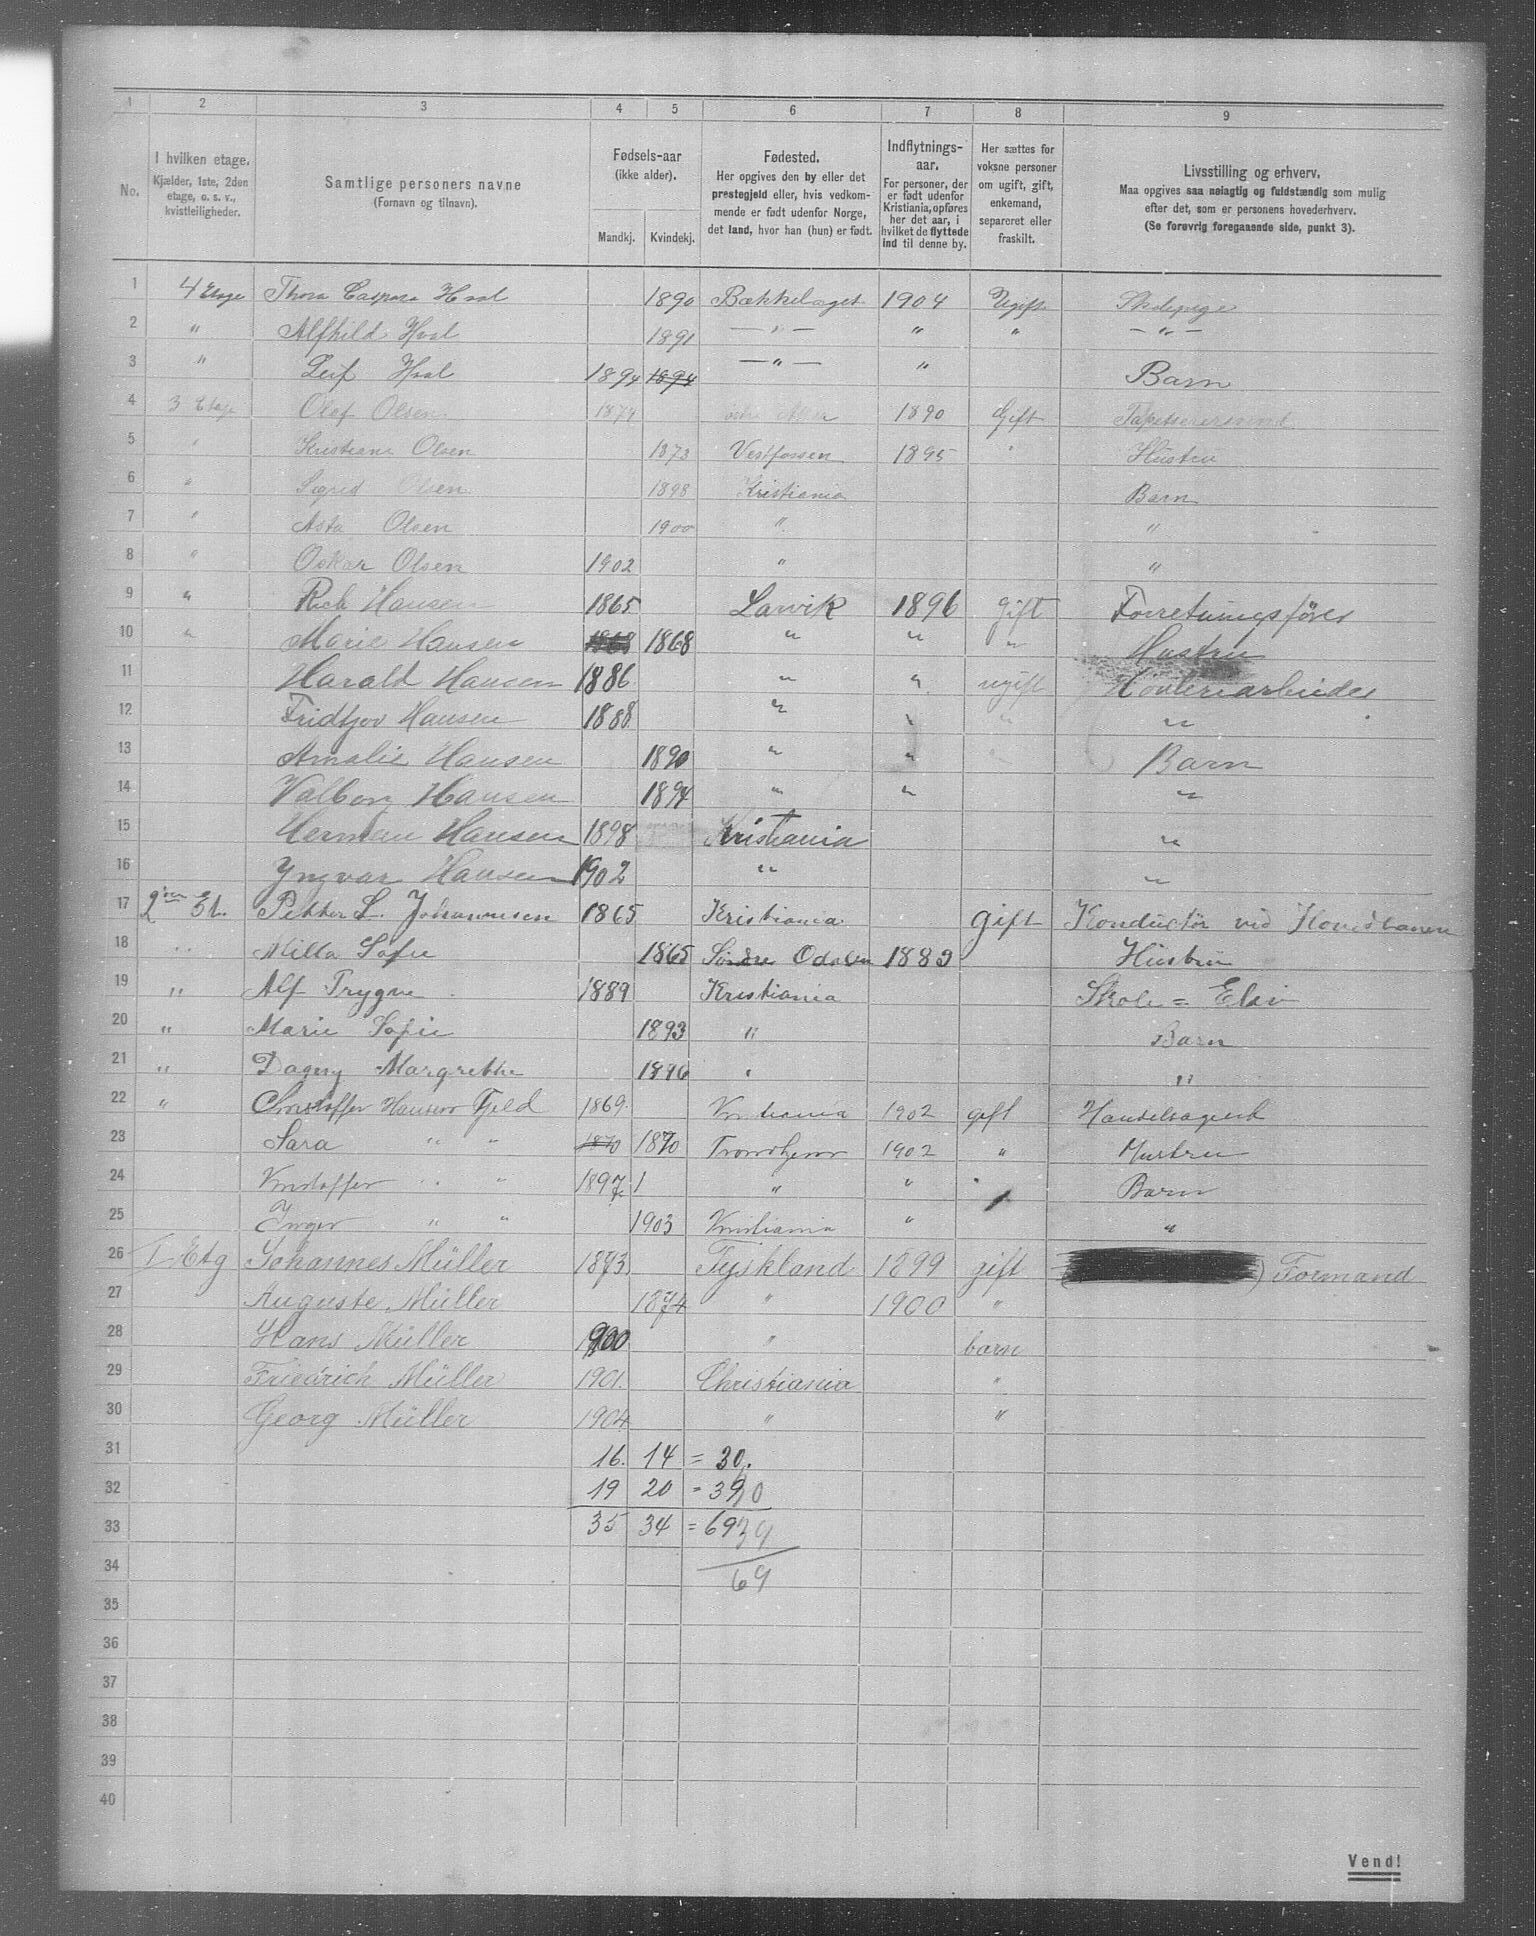 1 2 3 4 5 6 7 8 9
No.
I hvilken etage.
Kjælder, 1ste, 2den
etage, o. s. v.,
kvistleiligheder.
Samtlige personers navne
(Fornavn og tilnavn).
Fødsels-aar
(ikke alder).
Mandkj. Kvindekj.
Fødested.
Her opgives den by eller det
prestegjeld eller, hvis vedkom-
mende er født udenfor Norge,
det land, hvor han (hun) er født.
Indflytnings-
aar.
For personer, der
er født udenfor
Kristiania, opføres
her det aar, i
hvilket de flyttede
ind til denne by.
Her sættes for
voksne personer
om ugift, gift,
enkemand,
separeret eller
fraskilt.
Livsstilling og erhverv.
Maa opgives saa nøiagtig og fuldstændig som mulig
efter det, som er personens hovederhverv.
(Se forøvrig foregaaende side, punkt 3).
1 4 Etage Thora 1890 Bækkelaget 1904 Ugift Skolepige
2 " Alfhild 1891 — " — " " — " —
3 " Leif 1894 1894 — " — " Barn
4 3 Etage Olaf Olsen 1874 1890 Gift Tapetserersvend
5 " Kristiane Olsen 1873 Vestfossen 1895 " Hustru
6 " Sigrid Olsen 1898 Kristiania Barn
7 " Asta Olsen 1900 " "
8 " Oskar Olsen 1902 " "
9 " Rich Hansen 1865 Larvik 1896 gift Forretningsfører
10 " Marie Hansen 1868 1868 " " " Hustru
11 Harald Hansen 1886 " " ugift Høvleriarbeider
12 Fridtjov Hansen 1888 " " " "
13 Amalie Hansen 1890 " " Barn
14 Valbor Hansen 1894 " " "
15 Herman Hansen 1898 Kristiania "
16 Yngvar Hansen 1902 " "
17 2den Et. Petter L. Johannesen 1865 Kristiania gift Konduktør ved Hovedbanen
18 " Milla Sofie 1865 Søndre Odalen 1889 Hustru
19 " Alf Trygve 1889 Kristiania Skole = Elev
20 " Marie Sofie 1893 " Barn
21 " Dagny Margrethe 1896 " "
22 " Christoffer Hansen Fjeld 1869 Kristiania 1902 gift Handelsagent
23 Sara " " 1870 1870 Trondhjem 1902 " Hustru
24 Kristoffer " " 1897 1 " " Barn
25 Inger " " 1903 Kristiania " "
26 1. Etg Johannes Müller 1873 Tyskland 1899 gift ) Formand
27 Auguste Müller 1874 " 1900 "
28 Hans Müller 1900 " barn
29 Friedrich Müller 1901 Christiania "
30 Georg Müller 1904 " "
31 16. 14 = 30.
32 19 20 = 39
33 35 34 = 69
34 69
35
36
37
38
39
40
Vend!